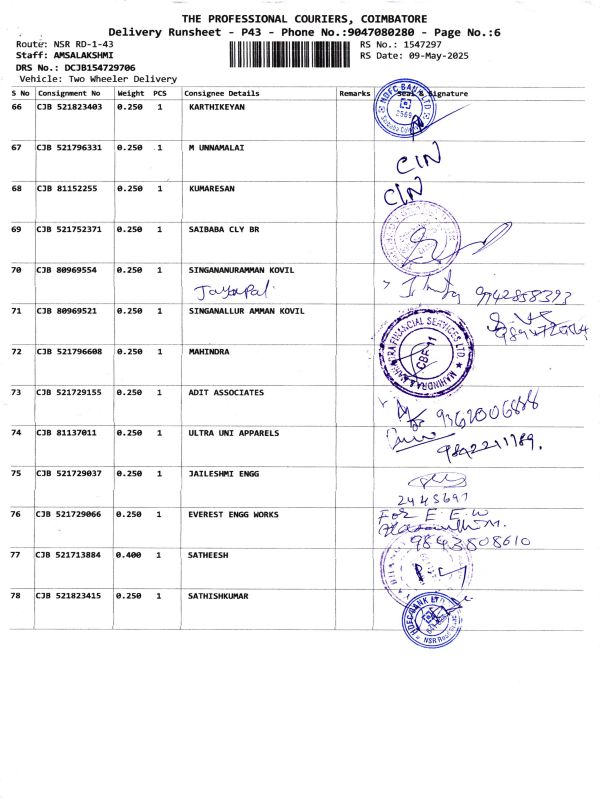 THE PROFESSIONAL COURIERS, COIMBATORE
Delivery Runsheet - P43 - Phone No.:9047080280 - Page No.:6
Route: NSR RD-1-43 RS No.: 1547297
Staff: AMSALAKSHMI RS Date: 09-May-2025
DRS No.: DCJB154729706
Vehicle: Two Wheeler Delivery
S No Consignment No Weight PCS Consignee Details Remarks Seal & Signature
66 CJB 521823403 0.250 1 KARTHIKEYAN
HDFC BANK LTD
67 CJB 521796331 0.250 1 M UNNAMALAI CIN
68 CJB 81152255 0.250 1 KUMARESAN CIN
69 CJB 521752371 0.250 1 SAIBABA CLY BR
70 CJB 80969554 0.250 1 SINGANANURAMMAN KOVIL
Jayapal 9742858393
71 CJB 80969521 0.250 1 SINGANALLUR AMMAN KOVIL
72 CJB 521796608 0.250 1 MAHINDRA
MAHINDRA & MAHINDRA FINANCIAL SERVICES LTD.
CBE 11
73 CJB 521729155 0.250 1 ADIT ASSOCIATES
9362006888
74 CJB 81137011 0.250 1 ULTRA UNI APPARELS
9842211789.
75 CJB 521729037 0.250 1 JAILESHMI ENGG
2445697
76 CJB 521729066 0.250 1 EVEREST ENGG WORKS For E.E.W
9843808610
77 CJB 521713884 0.400 1 SATHEESH
78 CJB 521823415 0.250 1 SATHISHKUMAR
HDFC BANK LTD